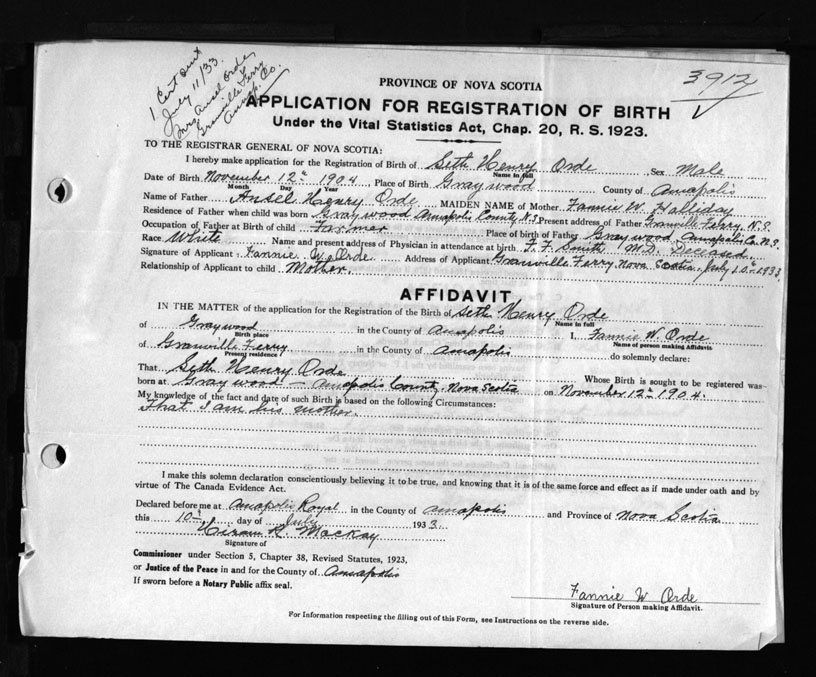 1 Cert sent
July 11/33.
Mrs Ansel Orde
Granville Ferry
Annap. Co.
3912
PROVINCE OF NOVA SCOTIA
APPLICATION FOR REGISTRATION OF BIRTH
Under the Vital Statistics Act, Chap. 20, R. S. 1923.
TO THE REGISTRAR GENERAL OF NOVA SCOTIA:
I hereby make application for the Registration of Birth of Seth Henry Orde Sex Male
Name in full
Date of Birth November 12th 1904 Place of Birth Graywood County of Annapolis
Month Day Year
Name of Father Ansel Henry Orde MAIDEN NAME of Mother Fannie W. Halliday
Residence of Father when child was born Graywood Annapolis County N.S. Present address of Father Granville Ferry, N.S.
Occupation of Father at Birth of child Farmer Place of birth of Father Graywood Annapolis Co. N.S.
Race White Name and present address of Physician in attendance at birth F. F. Smith M.D. Deceased
Signature of Applicant Fannie W. Orde Address of Applicant Granville Ferry, Nova Scotia, July 10th 1933
Relationship of Applicant to child Mother.
AFFIDAVIT
IN THE MATTER of the application for the Registration of the Birth of Seth Henry Orde
Name in full
of Graywood in the County of Annapolis I, Fannie W. Orde
Birth place Name of person making Affidavit
of Granville Ferry in the County of Annapolis do solemnly declare:
Present residence
That Seth Henry Orde Whose Birth is sought to be registered was
born at Graywood - Annapolis County, Nova Scotia on November 12th 1904.
My knowledge of the fact and date of such Birth is based on the following Circumstances:
That I am his mother.
I make this solemn declaration conscientiously believing it to be true, and knowing that it is of the same force and effect as if made under oath and by
virtue of The Canada Evidence Act.
Declared before me at Annapolis Royal in the County of Annapolis and Province of Nova Scotia
this 10th day of July 1933
Hiram R. Mackay
Signature of
Commissioner under Section 5, Chapter 38, Revised Statutes, 1923,
or Justice of the Peace in and for the County of Annapolis
If sworn before a Notary Public affix seal.
Fannie W Orde
Signature of Person making Affidavit.
For Information respecting the filling out of this Form, see Instructions on the reverse side.